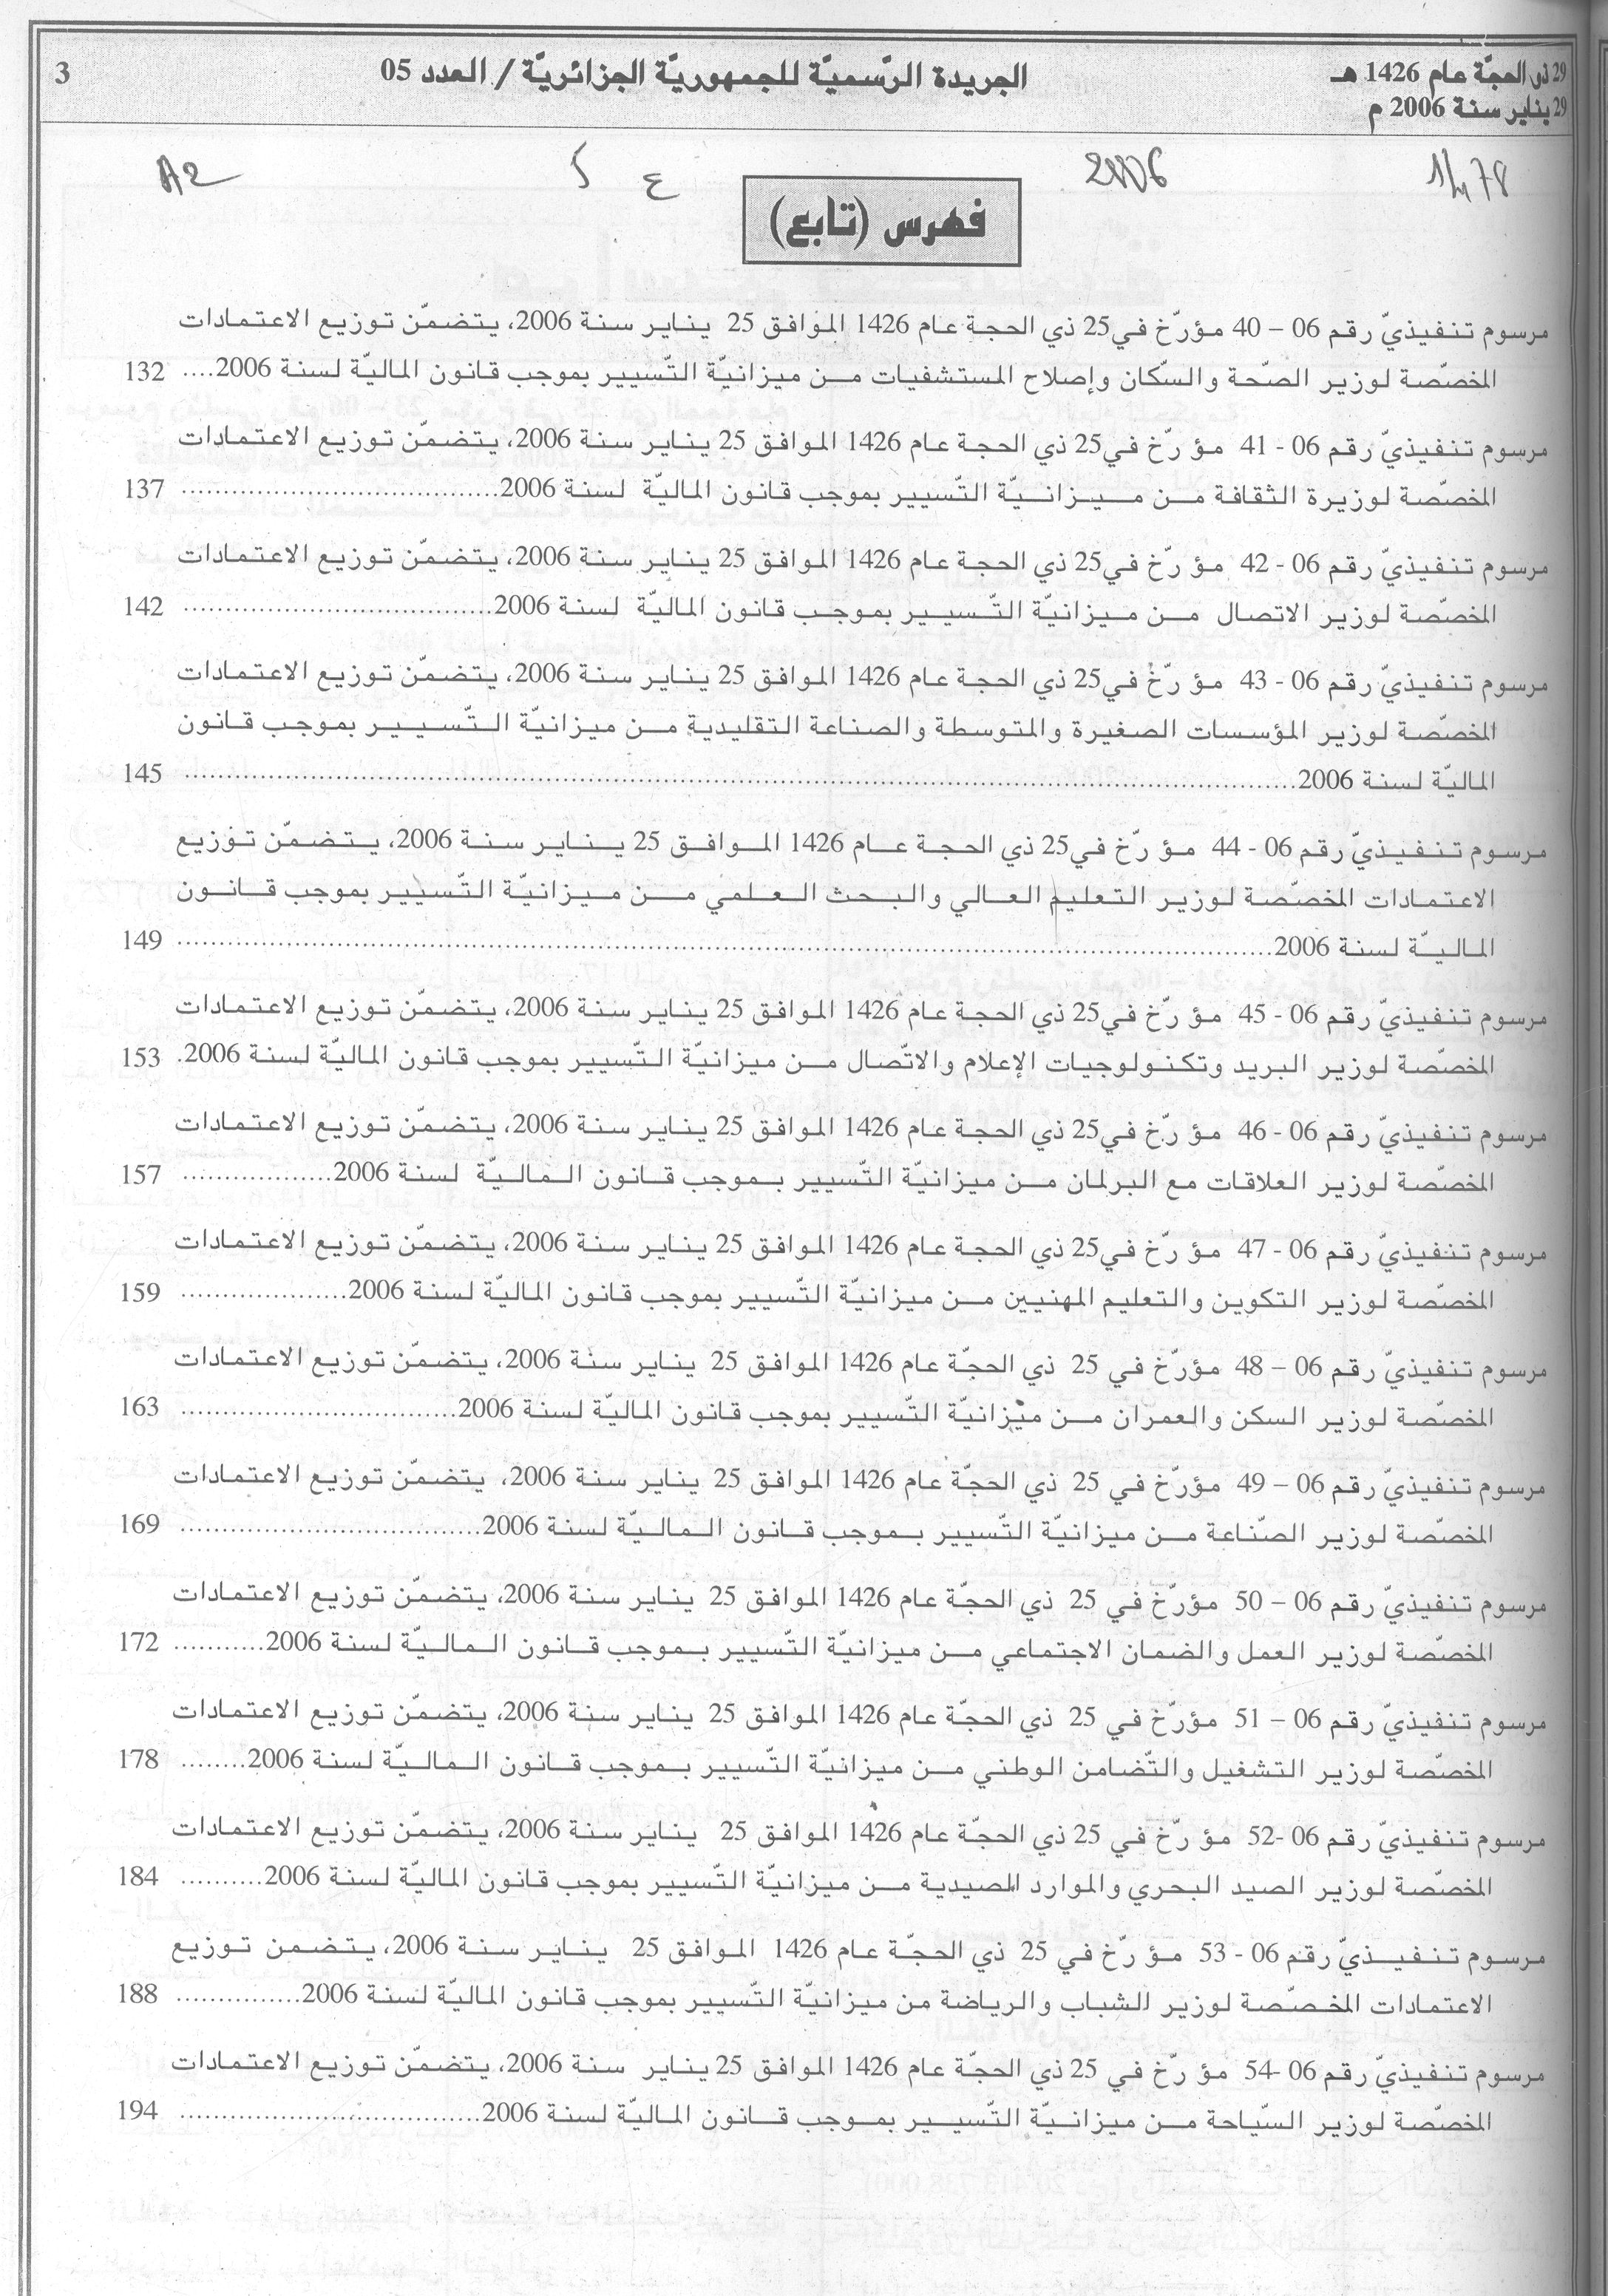 29 ذي الحجّة عام 1426 هـ
29 يناير سنة 2006 م
الجريدة الرّسميّة للجمهوريّة الجزائريّة / العدد 05
3
2006
5
ع
A2
فهرس (تابع)
مرسوم تنفيذيّ رقم 06 – 40 مؤرّخ في25 ذي الحجة عام 1426 الموافق 25 يناير سنة 2006، يتضمّن توزيع الاعتمادات
المخصّصة لوزير الصّحة والسكّان وإصلاح المستشفيات من ميزانيّة التّسيير بموجب قانون الماليّة لسنة 2006.... 132
مرسوم تنفيذيّ رقم 06 - 41 مؤرّخ في25 ذي الحجة عام 1426 الموافق 25 يناير سنة 2006، يتضمّن توزيع الاعتمادات
المخصّصة لوزيرة الثقافة من ميزانيّة التّسيير بموجب قانون الماليّة لسنة 2006.................................... 137
مرسوم تنفيذيّ رقم 06 - 42 مؤرّخ في25 ذي الحجة عام 1426 الموافق 25 يناير سنة 2006، يتضمّن توزيع الاعتمادات
المخصّصة لوزير الاتصال من ميزانيّة التّسيير بموجب قانون الماليّة لسنة 2006................................... 142
مرسوم تنفيذيّ رقم 06 - 43 مؤرّخ في25 ذي الحجة عام 1426 الموافق 25 يناير سنة 2006، يتضمّن توزيع الاعتمادات
المخصّصة لوزير المؤسسات الصغيرة والمتوسطة والصناعة التقليدية من ميزانيّة التّسيير بموجب قانون
الماليّة لسنة 2006........................................................................................................ 145
مرسوم تنفيذيّ رقم 06 - 44 مؤرّخ في25 ذي الحجة عام 1426 الموافق 25 يناير سنة 2006، يتضمّن توزيع
الاعتمادات المخصّصة لوزير التعليم العالي والبحث العلمي من ميزانيّة التّسيير بموجب قانون
الماليّة لسنة 2006........................................................................................................ 149
مرسوم تنفيذيّ رقم 06 - 45 مؤرّخ في25 ذي الحجة عام 1426 الموافق 25 يناير سنة 2006، يتضمّن توزيع الاعتمادات
المخصّصة لوزير البريد وتكنولوجيات الإعلام والاتّصال من ميزانيّة التّسيير بموجب قانون الماليّة لسنة 2006. 153
مرسوم تنفيذيّ رقم 06 - 46 مؤرّخ في25 ذي الحجة عام 1426 الموافق 25 يناير سنة 2006، يتضمّن توزيع الاعتمادات
المخصّصة لوزير العلاقات مع البرلمان من ميزانيّة التّسيير بموجب قانون الماليّة لسنة 2006................. 157
مرسوم تنفيذيّ رقم 06 - 47 مؤرّخ في25 ذي الحجة عام 1426 الموافق 25 يناير سنة 2006، يتضمّن توزيع الاعتمادات
المخصّصة لوزير التكوين والتعليم المهنيين من ميزانيّة التّسيير بموجب قانون الماليّة لسنة 2006................... 159
مرسوم تنفيذيّ رقم 06 – 48 مؤرّخ في 25 ذي الحجّة عام 1426 الموافق 25 يناير سنة 2006، يتضمّن توزيع الاعتمادات
المخصّصة لوزير السكن والعمران من ميزانيّة التّسيير بموجب قانون الماليّة لسنة 2006............................... 163
مرسوم تنفيذيّ رقم 06 – 49 مؤرّخ في 25 ذي الحجّة عام 1426 الموافق 25 يناير سنة 2006، يتضمّن توزيع الاعتمادات
المخصّصة لوزير الصّناعة من ميزانيّة التّسيير بموجب قانون الماليّة لسنة 2006.................................. 169
مرسوم تنفيذيّ رقم 06 – 50 مؤرّخ في 25 ذي الحجّة عام 1426 الموافق 25 يناير سنة 2006، يتضمّن توزيع الاعتمادات
المخصّصة لوزير العمل والضمان الاجتماعي من ميزانيّة التّسيير بموجب قانون الماليّة لسنة 2006........... 172
مرسوم تنفيذيّ رقم 06 – 51 مؤرّخ في 25 ذي الحجّة عام 1426 الموافق 25 يناير سنة 2006، يتضمّن توزيع الاعتمادات
المخصّصة لوزير التشغيل والتّضامن الوطني من ميزانيّة التّسيير بموجب قانون الماليّة لسنة 2006........ 178
مرسوم تنفيذيّ رقم 06 -52 مؤرّخ في 25 ذي الحجّة عام 1426 الموافق 25 يناير سنة 2006، يتضمّن توزيع الاعتمادات
المخصّصة لوزير الصيد البحري والموارد الصيدية من ميزانيّة التّسيير بموجب قانون الماليّة لسنة 2006.......... 184
مرسوم تنفيذيّ رقم 06 - 53 مؤرّخ في 25 ذي الحجّة عام 1426 الموافق 25 يناير سنة 2006، يتضمن توزيع
الاعتمادات المخصّصة لوزير الشباب والرياضة من ميزانيّة التّسيير بموجب قانون الماليّة لسنة 2006............... 188
مرسوم تنفيذيّ رقم 06 -54 مؤرّخ في 25 ذي الحجّة عام 1426 الموافق 25 يناير سنة 2006، يتضمّن توزيع الاعتمادات
المخصّصة لوزير السّياحة من ميزانيّة التّسيير بموجب قانون الماليّة لسنة 2006................................... 194